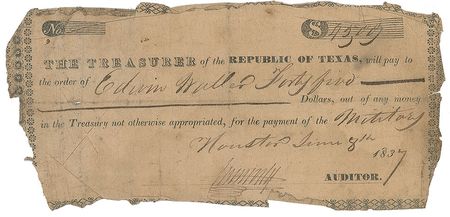 No.
$ 45
THE TREASURER of the REPUBLIC OF TEXAS, will pay to
the order of Edwin Waller Forty five
Dollars, out of any money
in the Treasury not otherwise appropriated, for the payment of the Military
Houston June 8th 1837
AUDITOR.